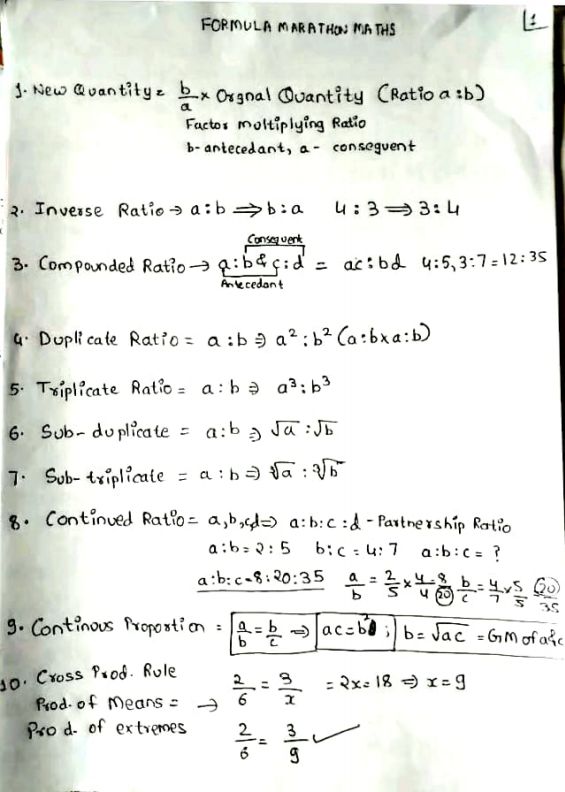 FORMULA MARATHON MATHS
1
1. New Quantity = b/a x Orgnal Quantity (Ratio a:b)
Factor moltiplying Ratio
b- antecedant, a - consequent
2. Inverse Ratio → a:b ⇒ b:a 4:3 ⇒ 3:4
Consequent
3. Compounded Ratio → a:b & c:d = ac:bd 4:5, 3:7 = 12:35
Antecedant
4. Duplicate Ratio = a:b ⇒ a²:b² (a:b x a:b)
5. Triplicate Ratio = a:b ⇒ a³:b³
6. Sub-duplicate = a:b ⇒ √a:√b
7. Sub-triplicate = a:b ⇒ ∛a:∛b
8. Continued Ratio = a,b,c,d ⇒ a:b:c:d - Partnership Ratio
a:b = 2:5 b:c = 4:7 a:b:c = ?
a:b:c = 8:20:35 a/b = 2/5 x 4/4 = 8/20 b/c = 4/7 x 5/5 20/35
9. Continous Proportion = a/b = b/c ⇒ ac = b² ; b = √ac = GM of a&c
10. Cross Prod. Rule 2/6 = 3/x = 2x = 18 ⇒ x = 9
Prod. of Means = →
Prod. of extremes 2/6 = 3/9 ✓